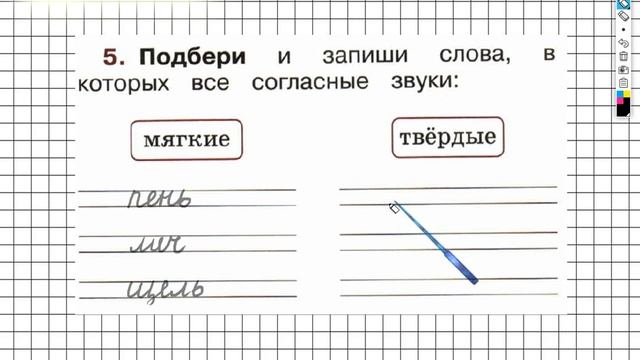 5. Подбери и запиши слова, в
которых все согласные звуки:
мягкие твёрдые
пень
меч
щель